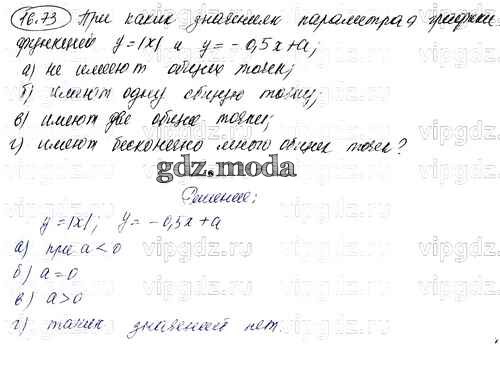 16.73 При каких значениях параметра a графики
функций y=|x| и y=-0,5x+a;
а) не имеют общих точек;
б) имеют одну общую точку;
в) имеют две общие точки;
г) имеют бесконечно много общих точек?
gdz.moda
Решение:
y=|x|; y=-0,5x+a
а) при a<0
б) a=0
в) a>0
г) таких значений нет.
vipgdz.ru